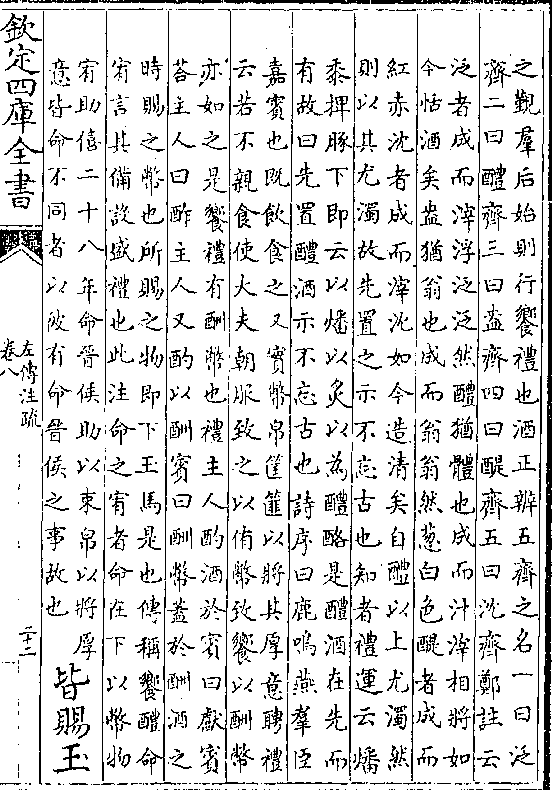 之觀羣后始則行饗禮也酒正辨五齊之名一曰泛
齊二曰醴齊三曰盎齊四曰醍齊五曰沈齊鄭註云
泛者成而滓浮泛泛然醴猶體也成而汁滓相將如
今恬酒矣盎猶翁也成而翁翁然葱白色醍者成而
紅赤沈者成而滓沈如今造清矣自醴以上尤濁然
則以其尤濁故先置之示不忘古也知者禮運云燔
黍捭豚下即云以燔以炙以為醴酪是醴酒在先而
有故曰先置醴酒示不忘古也詩序曰鹿鳴燕羣臣
嘉賓也既飲食之又實幣帛筐篚以將其厚意聘禮
云若不親食使大夫朝服致之以侑幣致饗以酬幣
亦如之是饗禮有酬幣也禮主人酌酒於賓曰獻賓
荅主人曰酢主人又酌以酬賓曰酬幣蓋於酬酒之
時賜之幣也所賜之物即下玉馬是也傳稱饗醴命
宥言其備設盛禮也此注命之宥者命在下以幣物
宥助僖二十八年命晉侯助以束帛以將厚
意皆命不同者以彼有命晉侯之事故也
皆賜玉
欽定四庫全書
左傳注疏
卷八
二十三